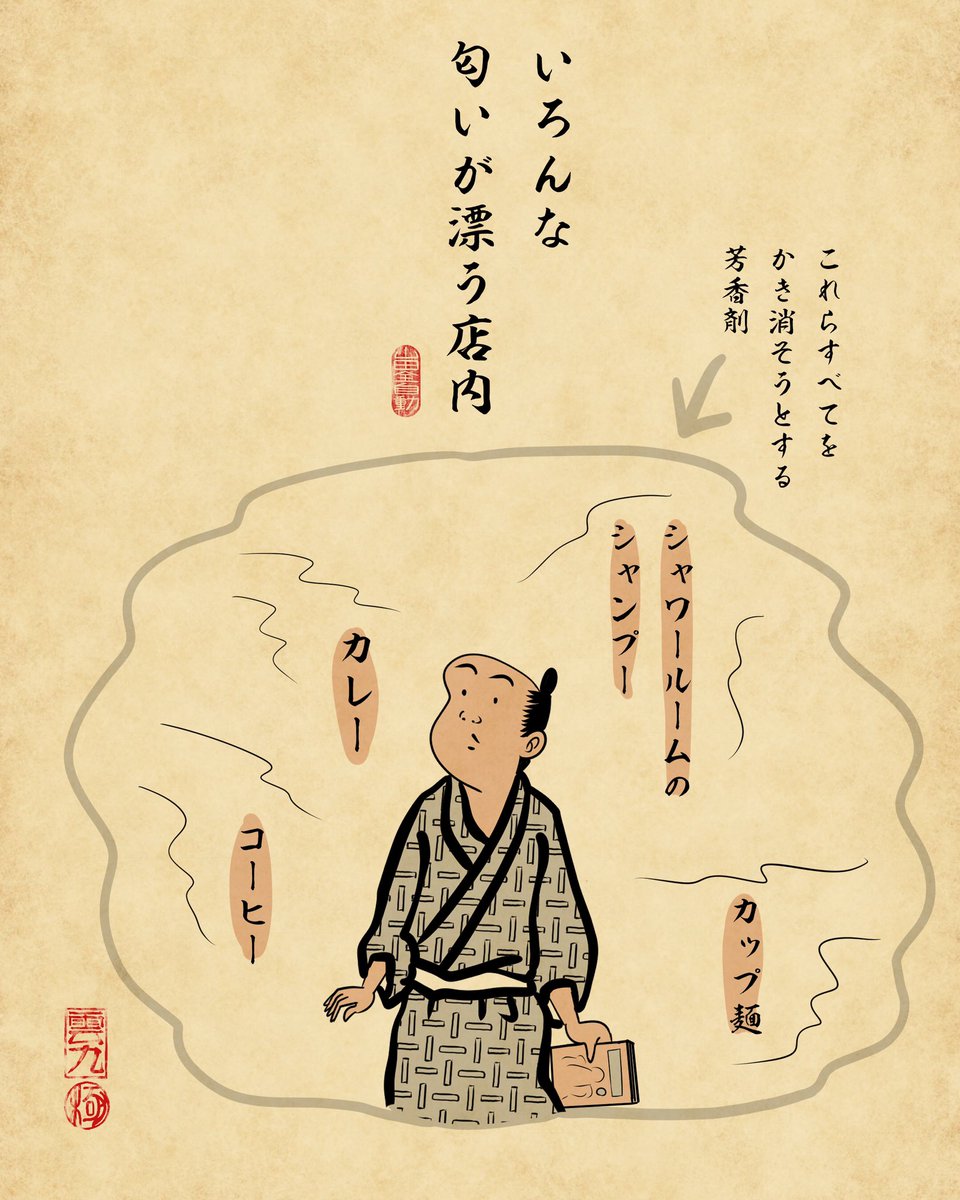 いろんな
匂いが漂う店内
これらすべてを
かき消そうとする
芳香剤
シャワールームの
シャンプー
カレー
コーヒー
カップ麺